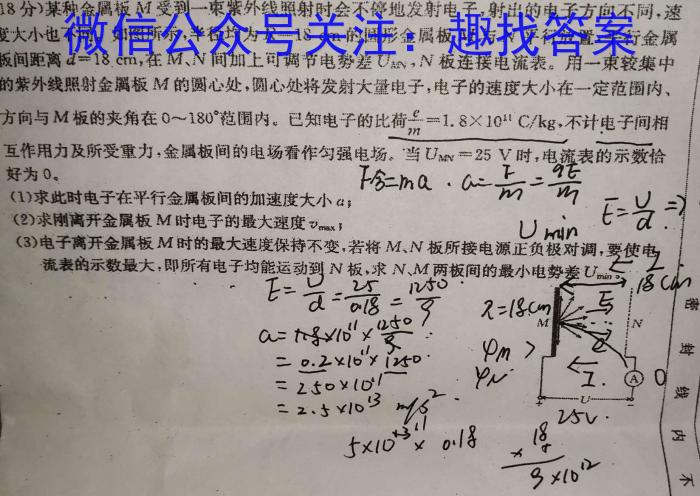 18分)某种金属板M受到一束紫外线照射时会不停地发射电子,射出的电子方向不同,速
度大小也
微信公众号关注：趣找答案
板间距离d=18 cm,在M、N间加上可调节电势差UMN,N板连接电流表。用一束较集中
的紫外线照射金属板M的圆心处,圆心处将发射大量电子,电子的速度大小在一定范围内、
方向与M板的夹角在0～180°范围内。已知电子的比荷e/m=1.8×10¹¹ C/kg,不计电子间相
互作用力及所受重力,金属板间的电场看作匀强电场。当UMN=25 V时,电流表的示数恰
好为0。
F合=ma . a=F/m=qE/m
(1)求此时电子在平行金属板间的加速度大小a;
(2)求刚离开金属板M时电子的最大速度vmax;
Umin
E=U/d ⇒
(3)电子离开金属板M时的最大速度保持不变,若将M、N板所接电源正负极对调,要使电
流表的示数最大,即所有电子均能运动到N板,求N、M两板间的最小电势差Umin。
18cm
E=U/d=25/0.18=1250/9
r=18cm
E
M
N
a=1.8×10¹¹×1250/9
=0.2×10¹¹×1250
=250×10¹¹
=2.5×10¹³ m/s²
φM >
φN
I
A
0
U
25V
5×10¹³× 0.18
18
×
9×10¹²
密封线内不